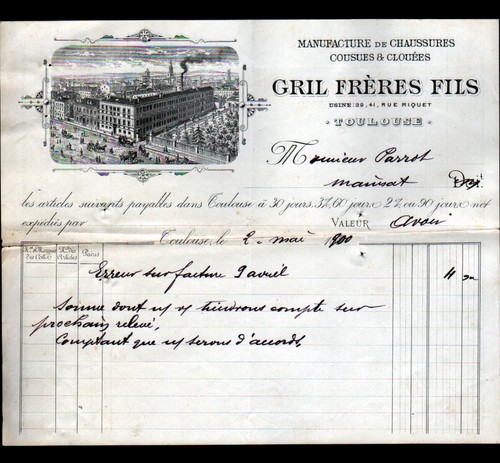 MANUFACTURE DE CHAUSSURES
COUSUES & CLOUÉES
GRIL FRÈRES FILS
USINE: 39, 41, RUE RIQUET
TOULOUSE
Monsieur Parrot
mansat
les articles suivants payables dans Toulouse à 30 jours 3% 60 jours 2% ou 90 jours net
expédiés par
VALEUR avoir
Toulouse, le 2 mai 1900
Nos des Articles
Erreur sur facture 9 avril 11
Somme dont n/ v/ tiendrons compte sur
prochain relevé,
Comptant que n/ serons d'accord,